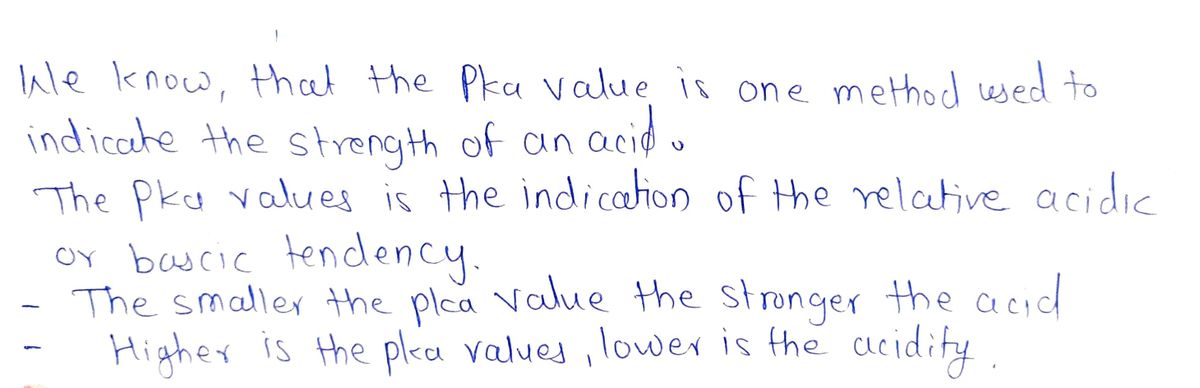 We know, that the Pka value is one method used to
indicate the strength of an acid.
The Pka values is the indication of the relative acidic
or bascic tendency.
- The smaller the pka value the stronger the acid
- Higher is the pka values, lower is the acidity.